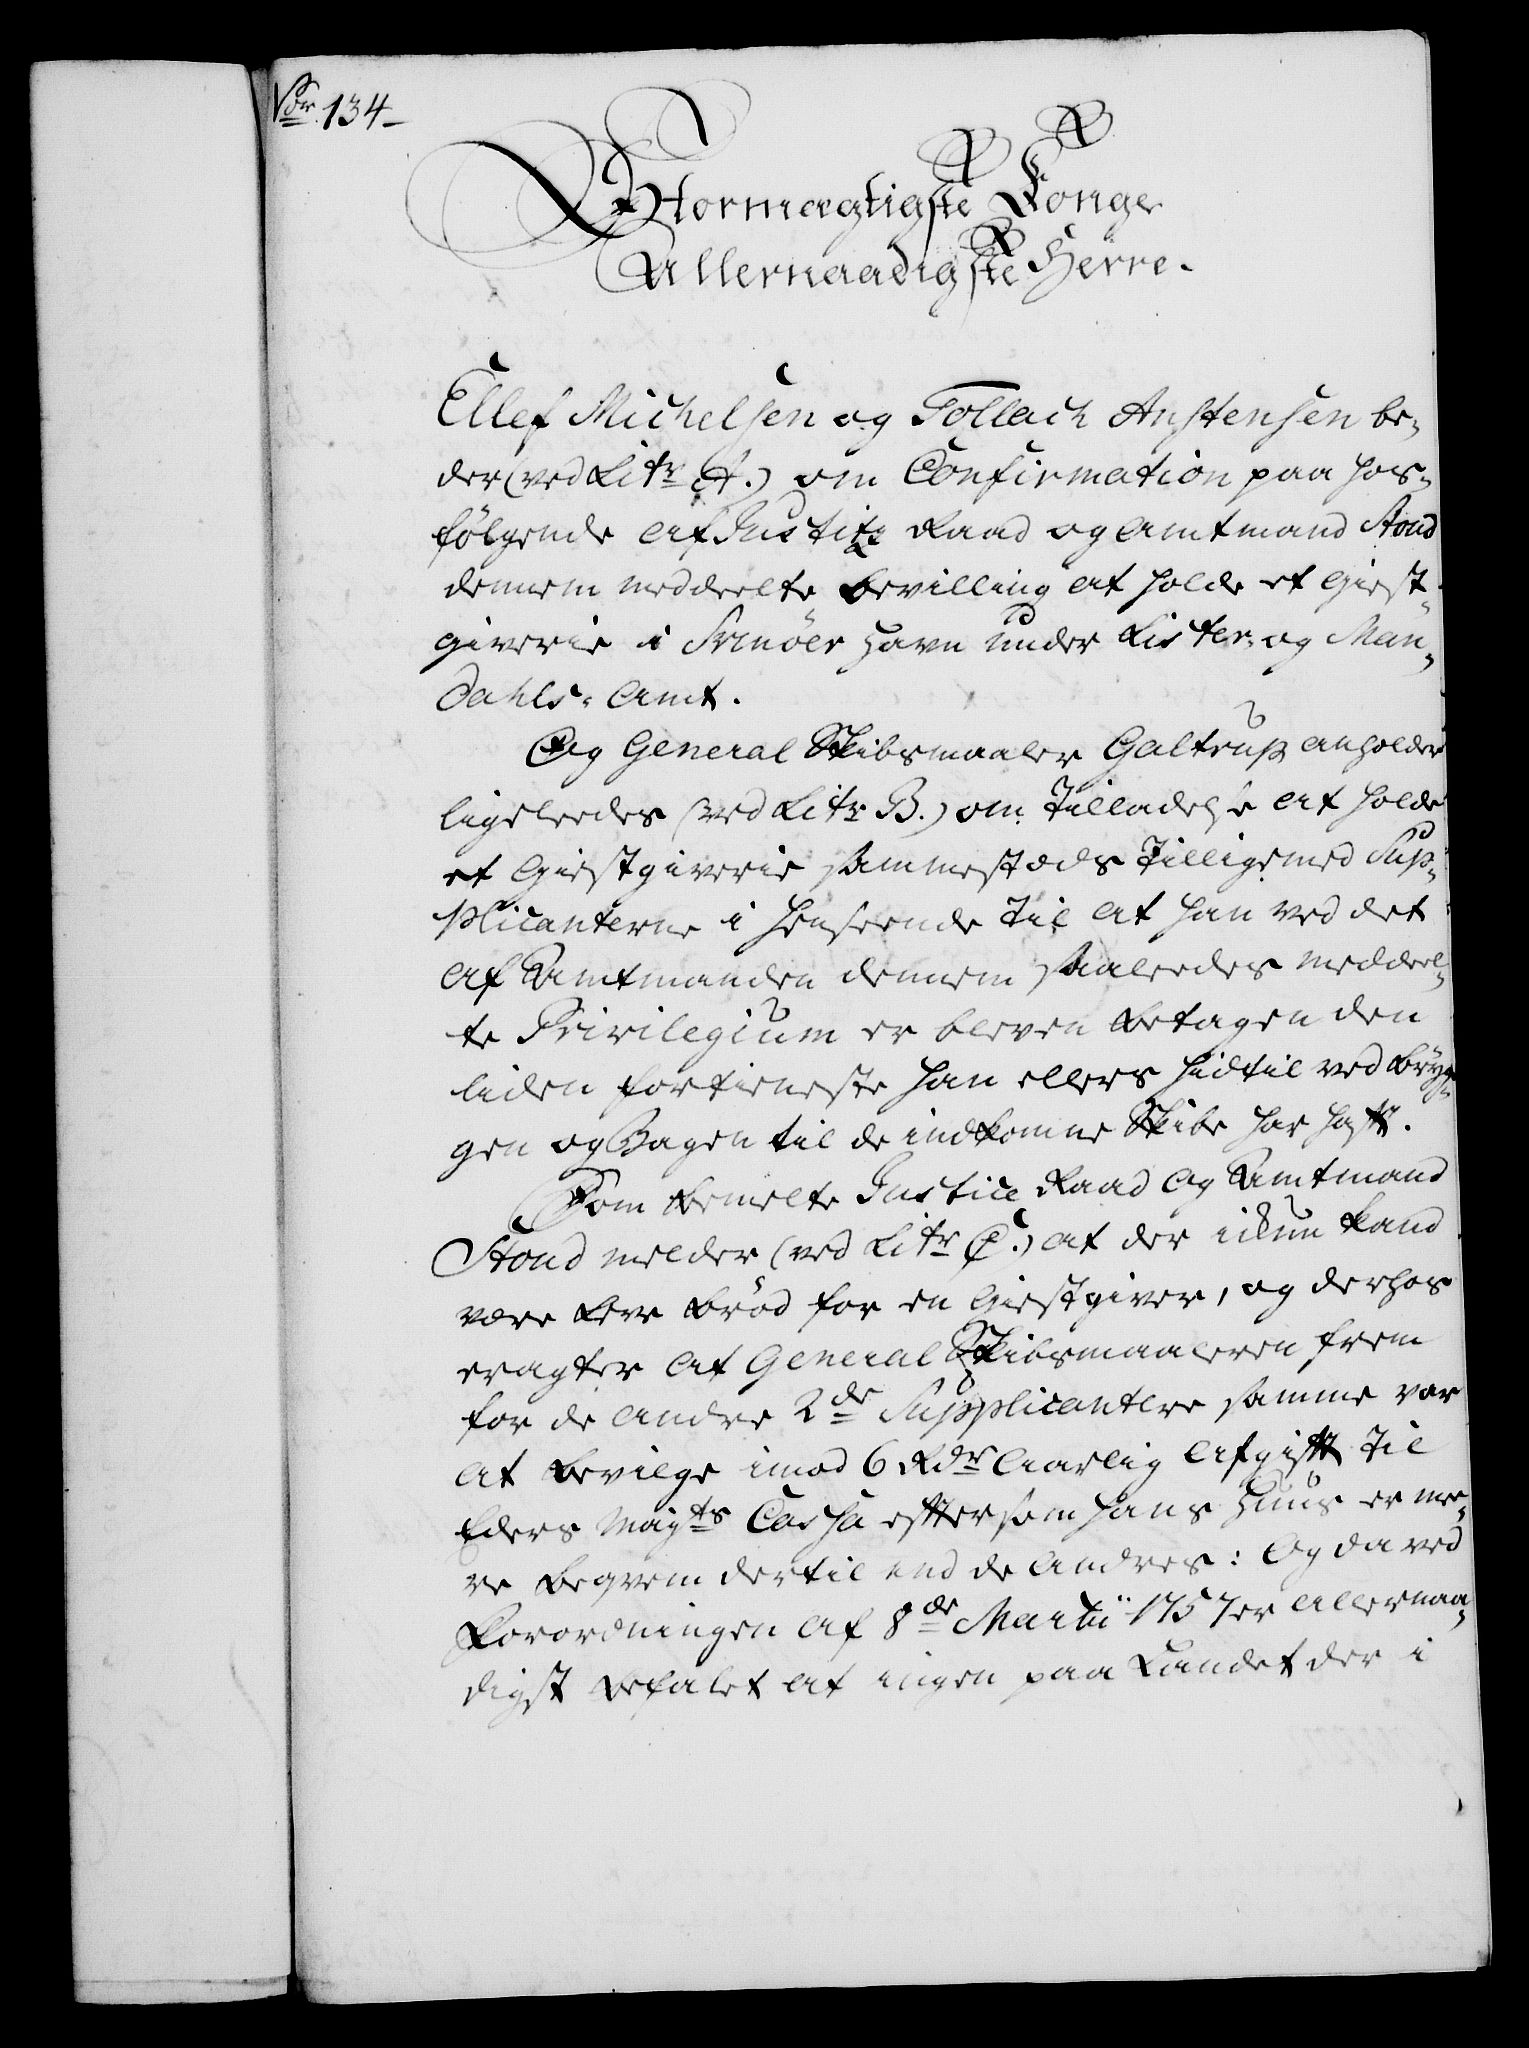 Nor. 134.
Stormægtigste Konge
Allernaadigste Herre.
Ellef Michelsen og Tollach Anstensen be-
der (ved Litr A.) om Confirmation paa hos-
følgende af Justitz Raad og Amtmand Stoud
dennem meddeelte Bevilling at holde et Giest-
giverie i Svinöer Havn under Lister- og Man-
dahls-Amt.
Og General Skibsmaaler Galtrup anholder
ligeleedes (ved Litr B.) om Tilladelse at holde
et Giestgiverie sammestæds tilligemed Sup-
plicanterne i henseende til at han ved det
af Amtmanden dennem saaleedes meddeel-
te Privilegium er bleven betagen den
liden fortieneste han ellers hidtil ved Bryg-
gen og Bagen til de indkomne Skibe har hafft.
Som bemelte Justice Raad og Amtmand
Stoud melder (ved Litr C.) at der ickun kand
være Leve Brød for en Giestgiver, og derhos
eragter at General Skibsmaaleren frem
for de andre 2de Supplicantere samme var
at bevilge imod 6 Rdr aarlig Afgifft til
Eders Mayts Cassa efftersom hans Huus er me-
re beqvem dertil end de Andres: Og da ved
Forordningen af 8de Martii 1757 er allernaa-
digst befalet at ingen paa Landet der i